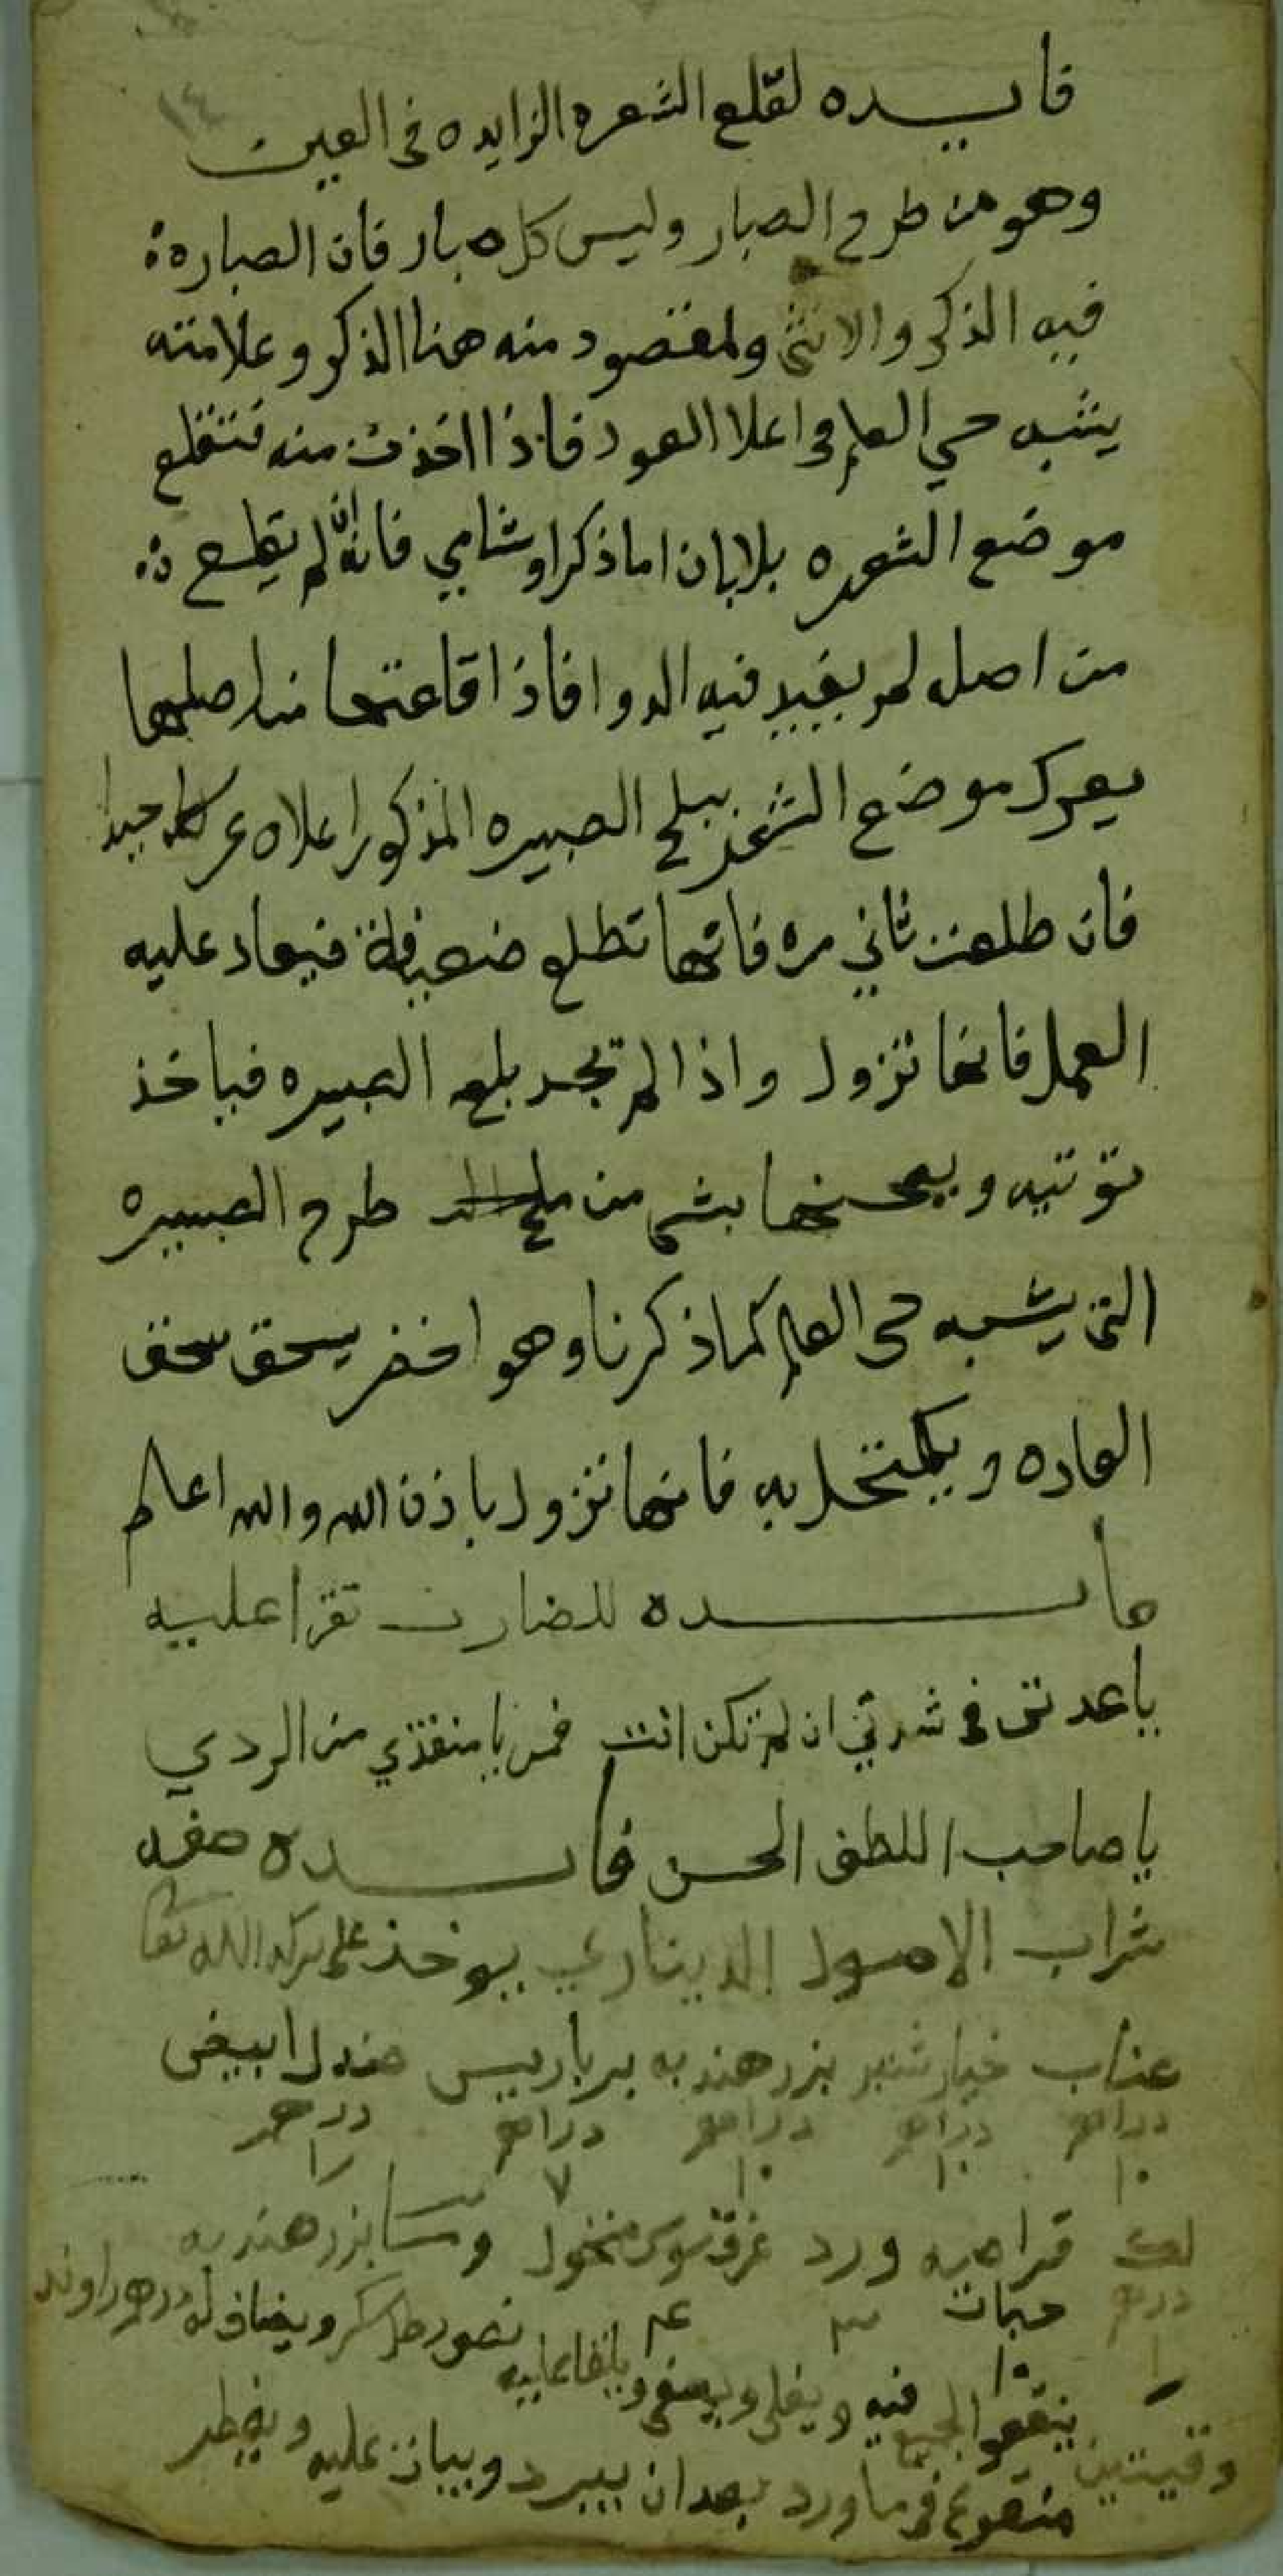 ١٤
فايده لقلع الشعره الزايده في العين
وهو من طرح الصبار وليس كل صبار فان الصباره
فيه الذكر والانثى ولمقصود منه هنا الذكر وعلامته
يشبه حي العلم في اعلا العود فاذا اخذت منه فتقلع
موضع الشعره بلابان اما ذكر او شامي فانه ان لم تقلع
من اصل لم يفيد فيه الدوا فاذا قلعتها من اصلها
يعرك موضع الشعر ببلح الصبيره المذكور اعلاه عركا جيدا
فان طلعت ثاني مره فانها تطلع ضعيفة فيعاد عليه
العمل فانها تزول واذا لم تجد بلح الصبيره فياخذ
توتيه ويعجنها بشي من طرح الصبيره
التي يشبه حي العلم كما ذكرنا وهو اخضر يسحق سحق
العاده ويكتحل به فانها تزول باذن الله والله اعلم
فايده للضارب تقرا عليه
ياعدتي في شدتي ان لم تكن انت فمن يا منقذي من الردي
يا صاحب اللطف الحسن فايده صفه
شراب الاصول الديناري يوخذ على بركه الله تعا
عناب خيار شنبر بزر هندبه برباريس صندل ابيض
دراهم دراهم دراهم دراهم درهم
١٠ ١٠ ١٠ ٧ ١
لك قراصيه ورد عرقسوس منخول وسنا بزر هندبه
درهم حبات ٣ ع
١ ١٥ نصف رطل سكر ويضاف له درهم راوند
ينقعوا الجميع فيه ويغلى ويصفى ويلقا عليه
وقيتين منقوع في ماورد بعد ان يبرد ويبات عليه ويفطر